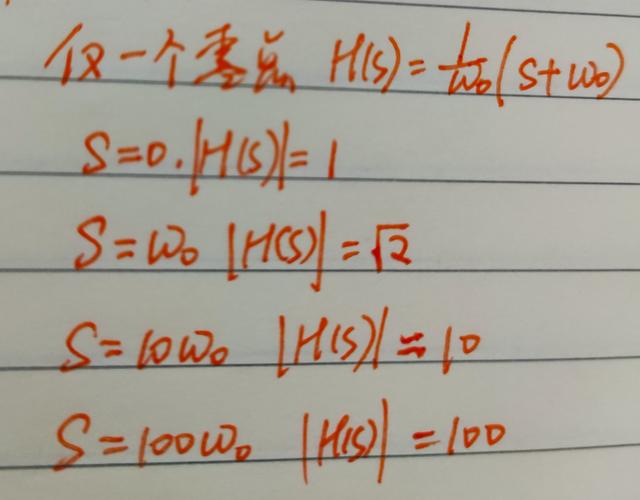 仅一个零点 H(s)=1/ω₀(s+ω₀)
S=0.|H(s)|=1
S=ω₀ |H(s)|=√2
S=10ω₀ |H(s)|≈10
S=100ω₀ |H(s)|=100